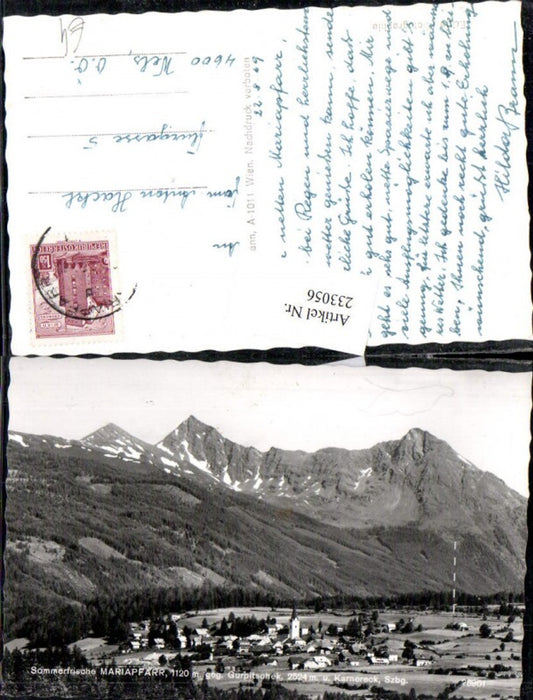 An
Fam. Anton Hackl
5
4600 Wels, O.Ö.
REPUBLIK ÖSTERREICH
ann, A 1011 Wien. Nachdruck verboten
22.8.69
netten Mariapfarr,
bei Regen und herrlichstem
wetter genießen kann, sende
liche Grüße. Ich hoffe, daß
gut erholen können. Mir
geht es sehr gut, nette Spazierwege und
viele Ausflugsmöglichkeiten gibt
genug, für Ältere erwarte ich aber
Wetter. Ich gedenke bis zum 1.9. zu blei-
ben, Ihnen noch recht gute Erholung
wünschend, grüßt herzlich
Hilde
Artikel Nr.
233056
Sommerfrische MARIAPFARR, 1120 m, geg. Gurpitscheck, 2524 m u. Karnereck, Szbg.